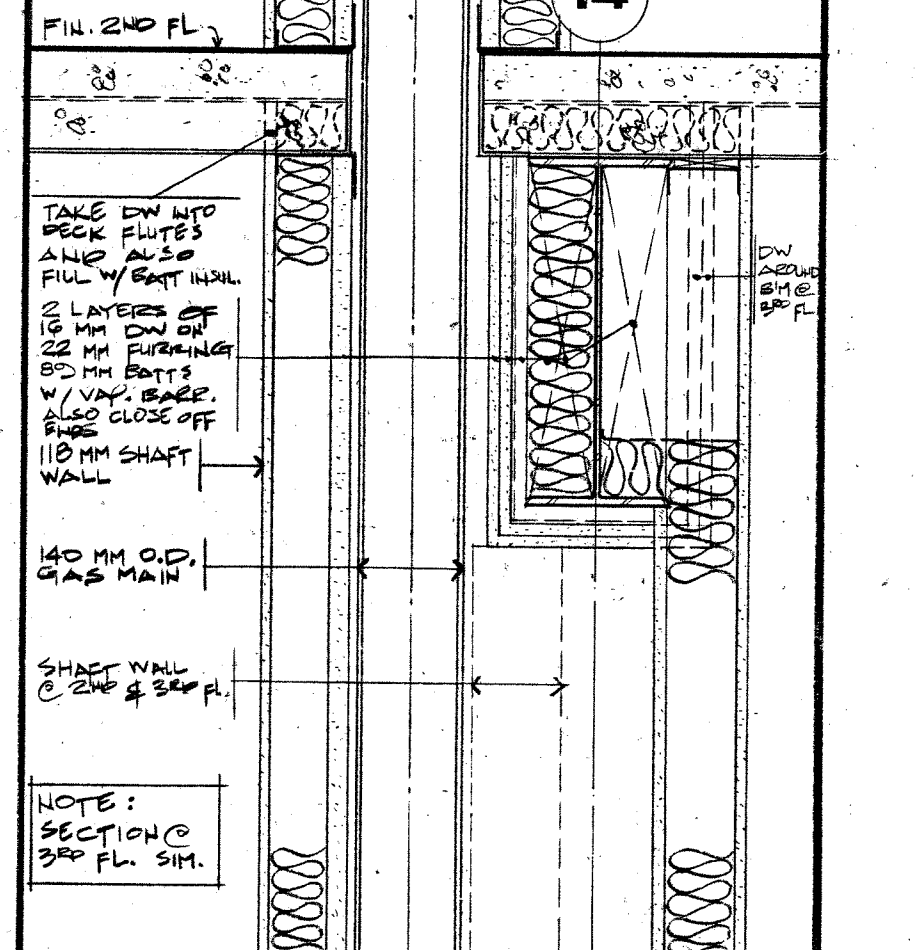 FIN. 2ND FL
14
TAKE DW INTO
DECK FLUTES
AND ALSO
FILL W/ BATT INSUL.
2 LAYERS OF
16 MM DW ON
22 MM FURRING
89 MM BATTS
W/ VAP. BARR.
ALSO CLOSE OFF
ENDS
118 MM SHAFT
WALL
140 MM O.D.
GAS MAIN
SHAFT WALL
@ 2ND & 3RD FL.
NOTE:
SECTION @
3RD FL. SIM.
DW
AROUND
BM @
3RD FL